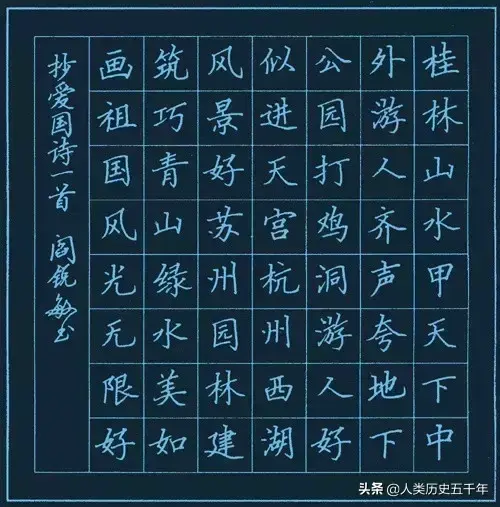 桂林山水甲天下中
外游人齐声夸地下
公园打鸡洞游人好
似进天宫杭州西湖
风景好苏州园林建
筑巧青山绿水美如
画祖国风光无限好
抄爱国诗一首 阎锐敏书
头条 @人类历史五千年